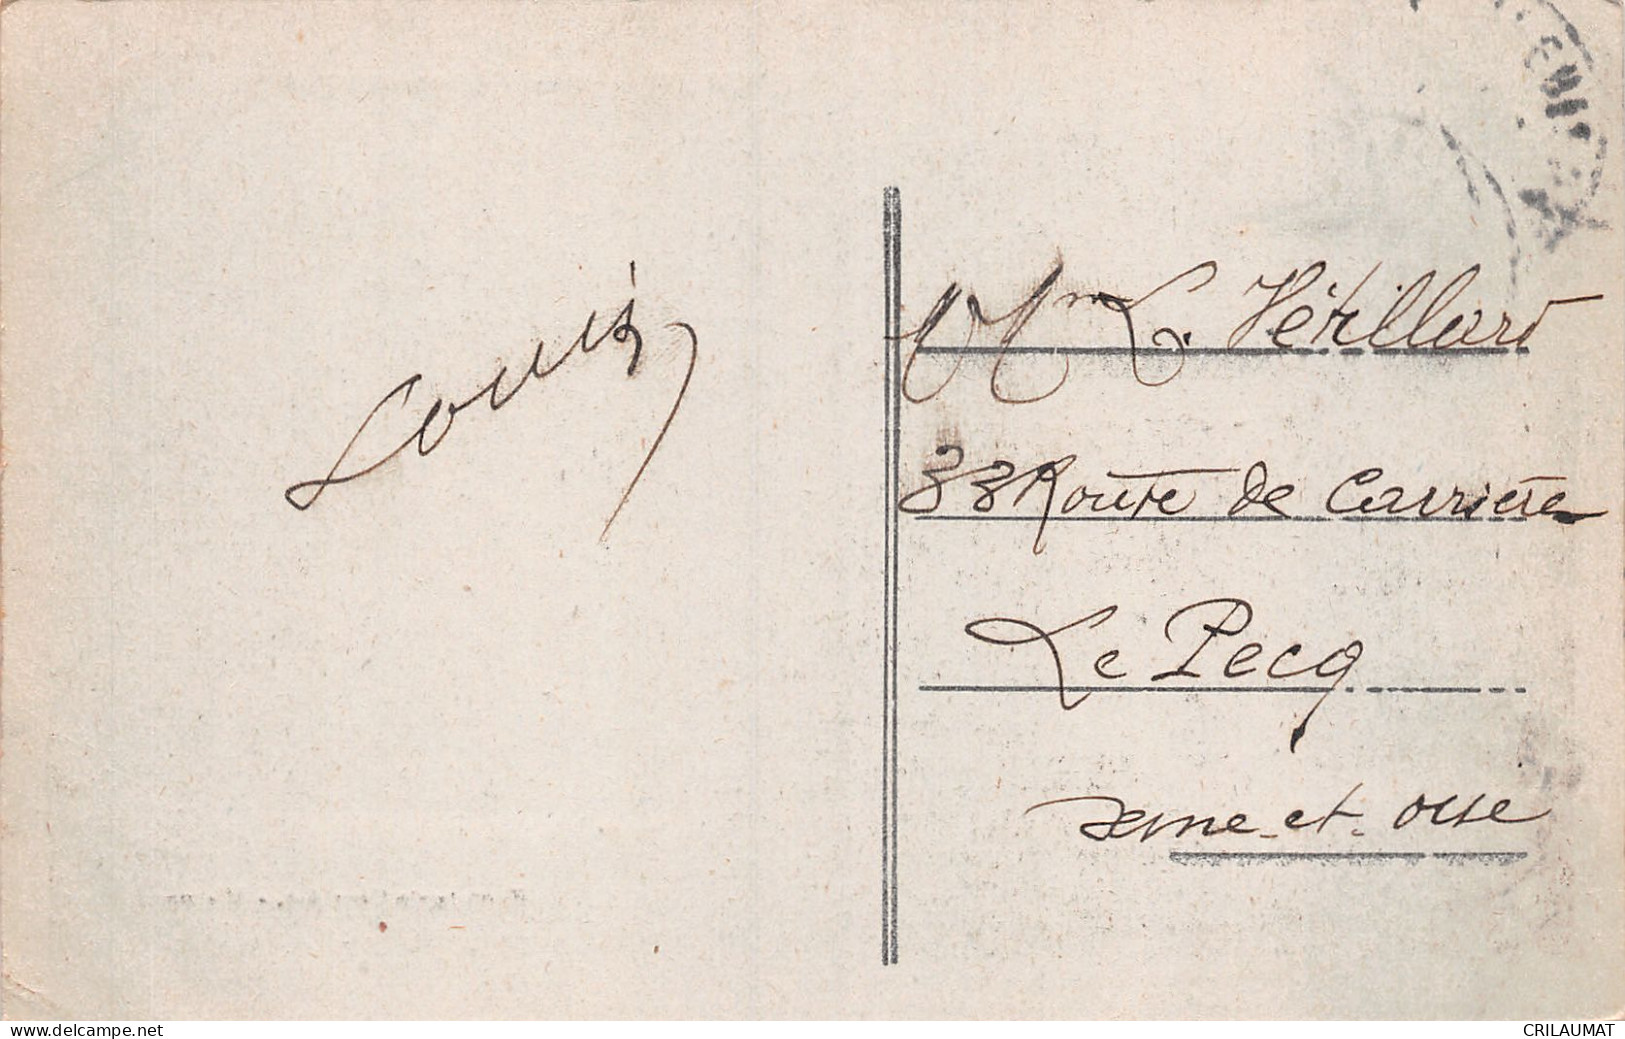 Louis
Mme L. Vétillard
33 Route de Carrière
Le Pecq
Seine-et-Oise
www.delcampe.net
CRILAUMAT